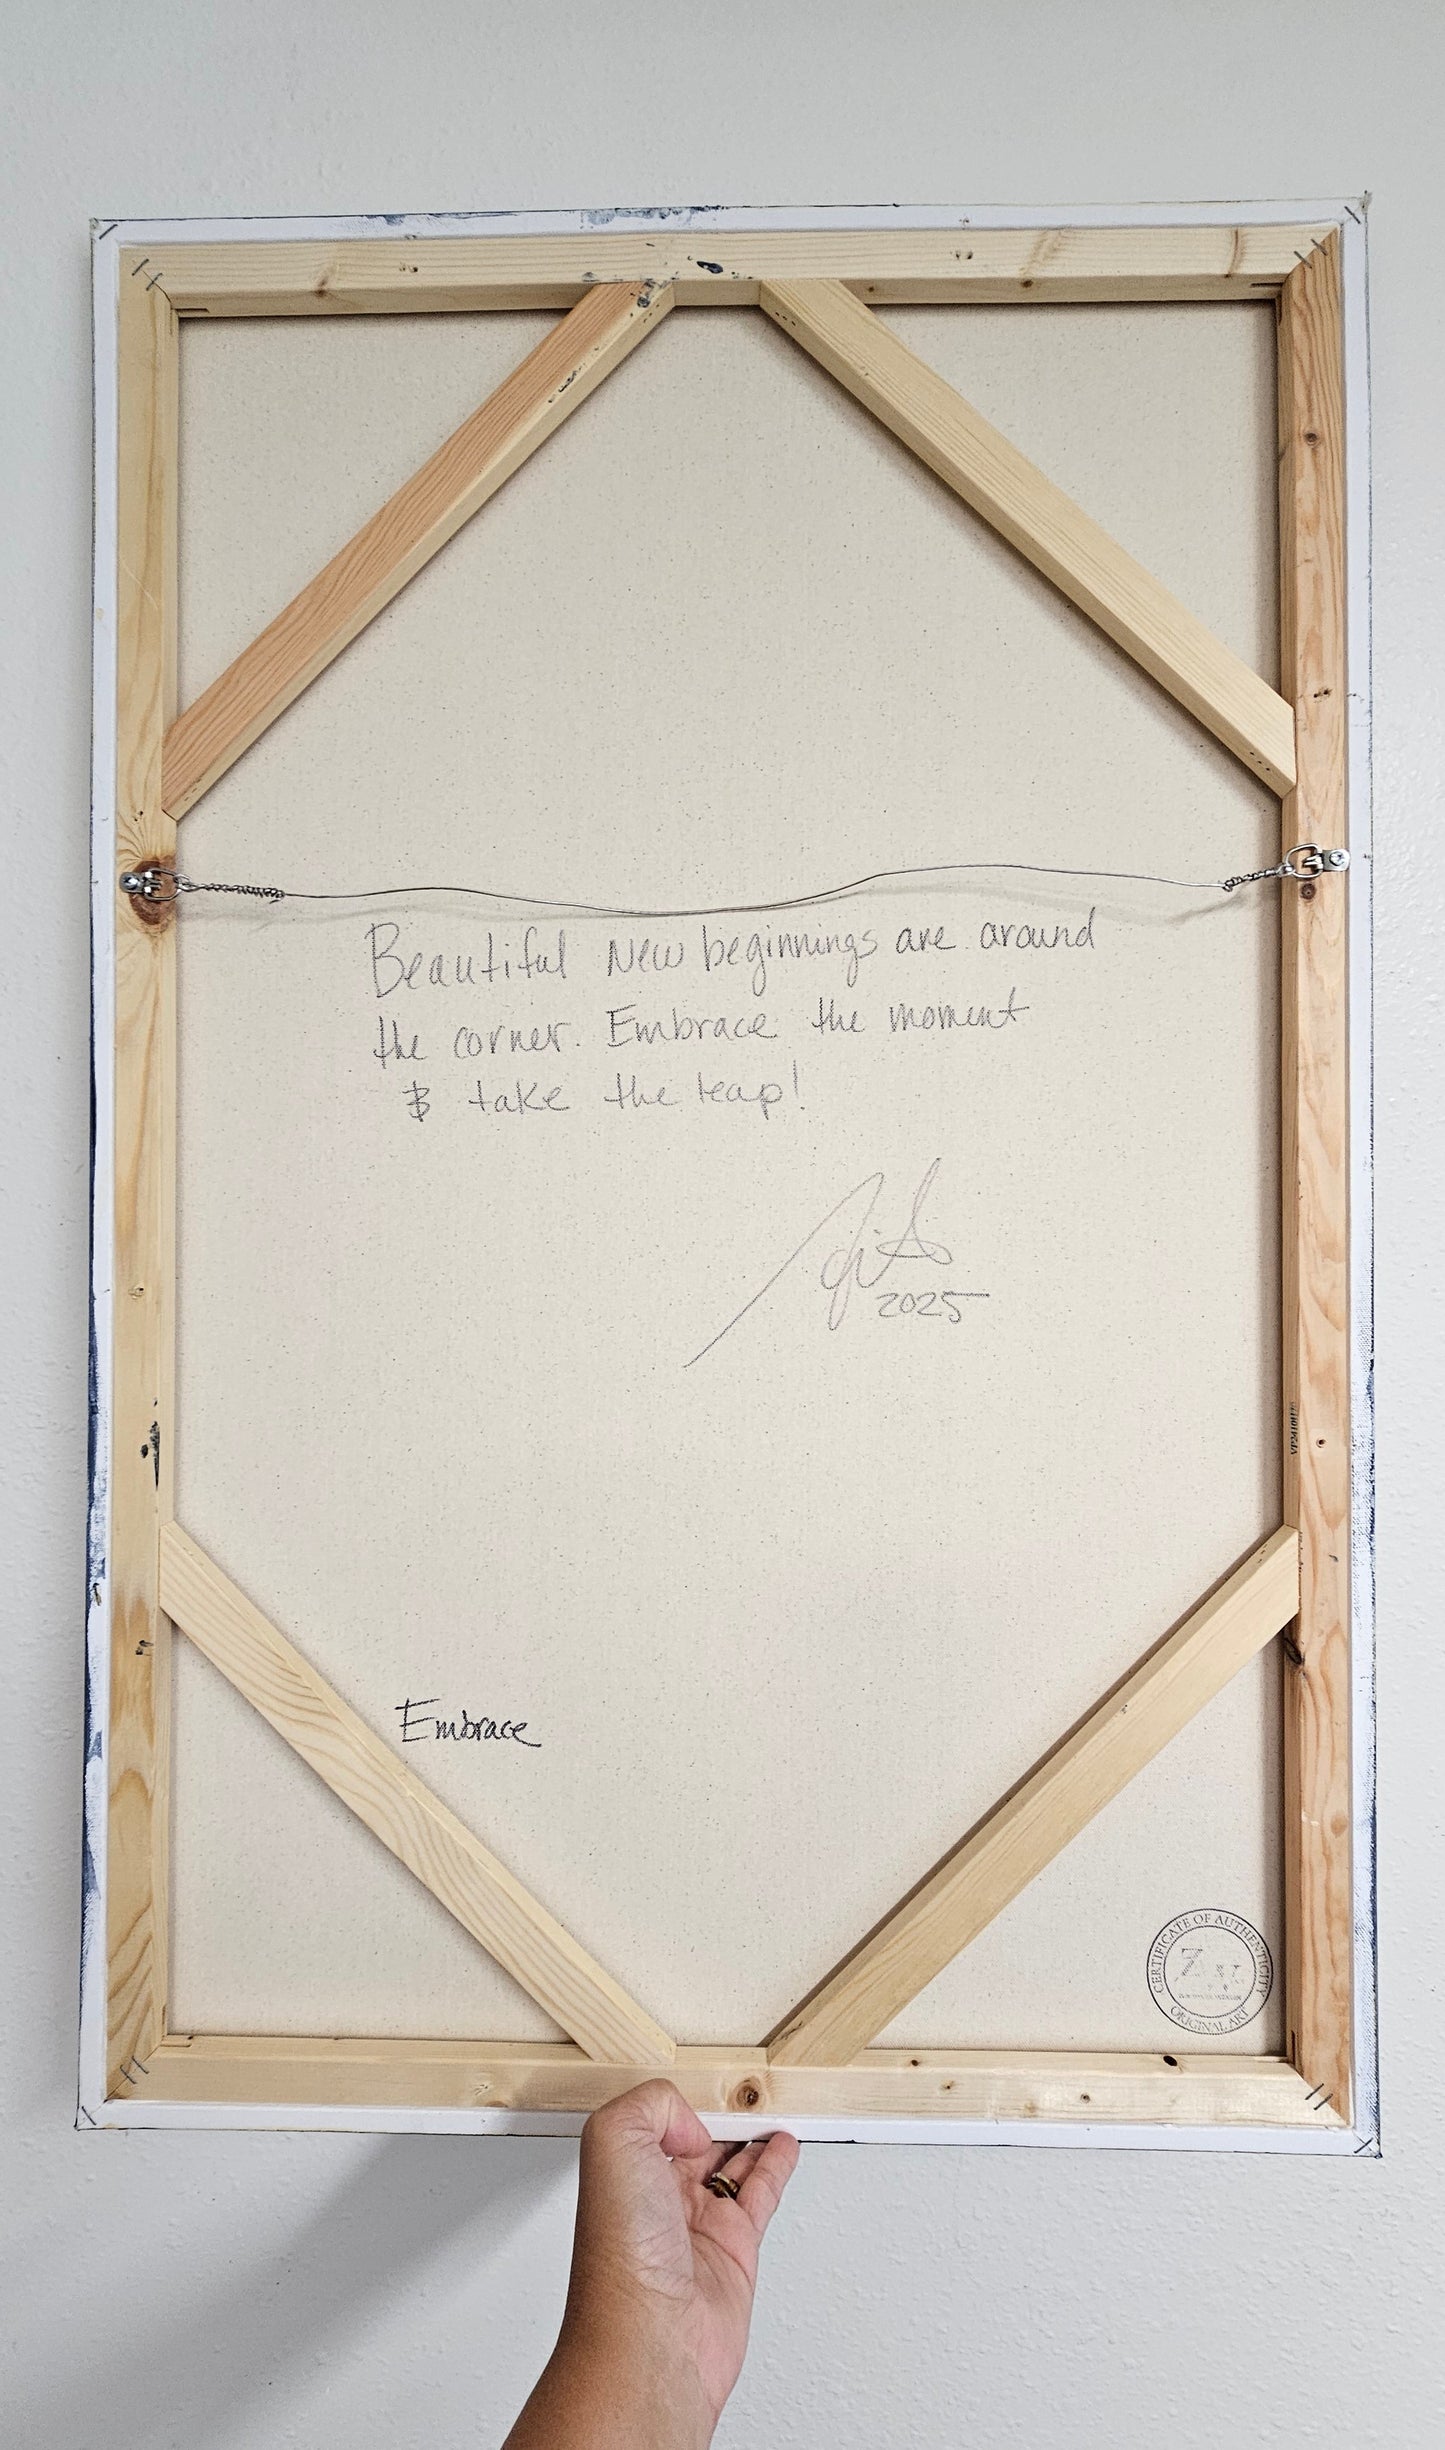 Beautiful New beginnings are around
the corner. Embrace the moment
& take the leap!
2025
Embrace
CERTIFICATE OF AUTHENTICITY
ORIGINAL ART